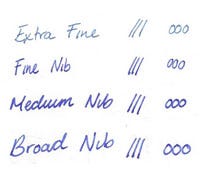 Extra Fine /// ooo
Fine Nib /// ooo
Medium Nib /// ooo
Broad Nib /// ooo